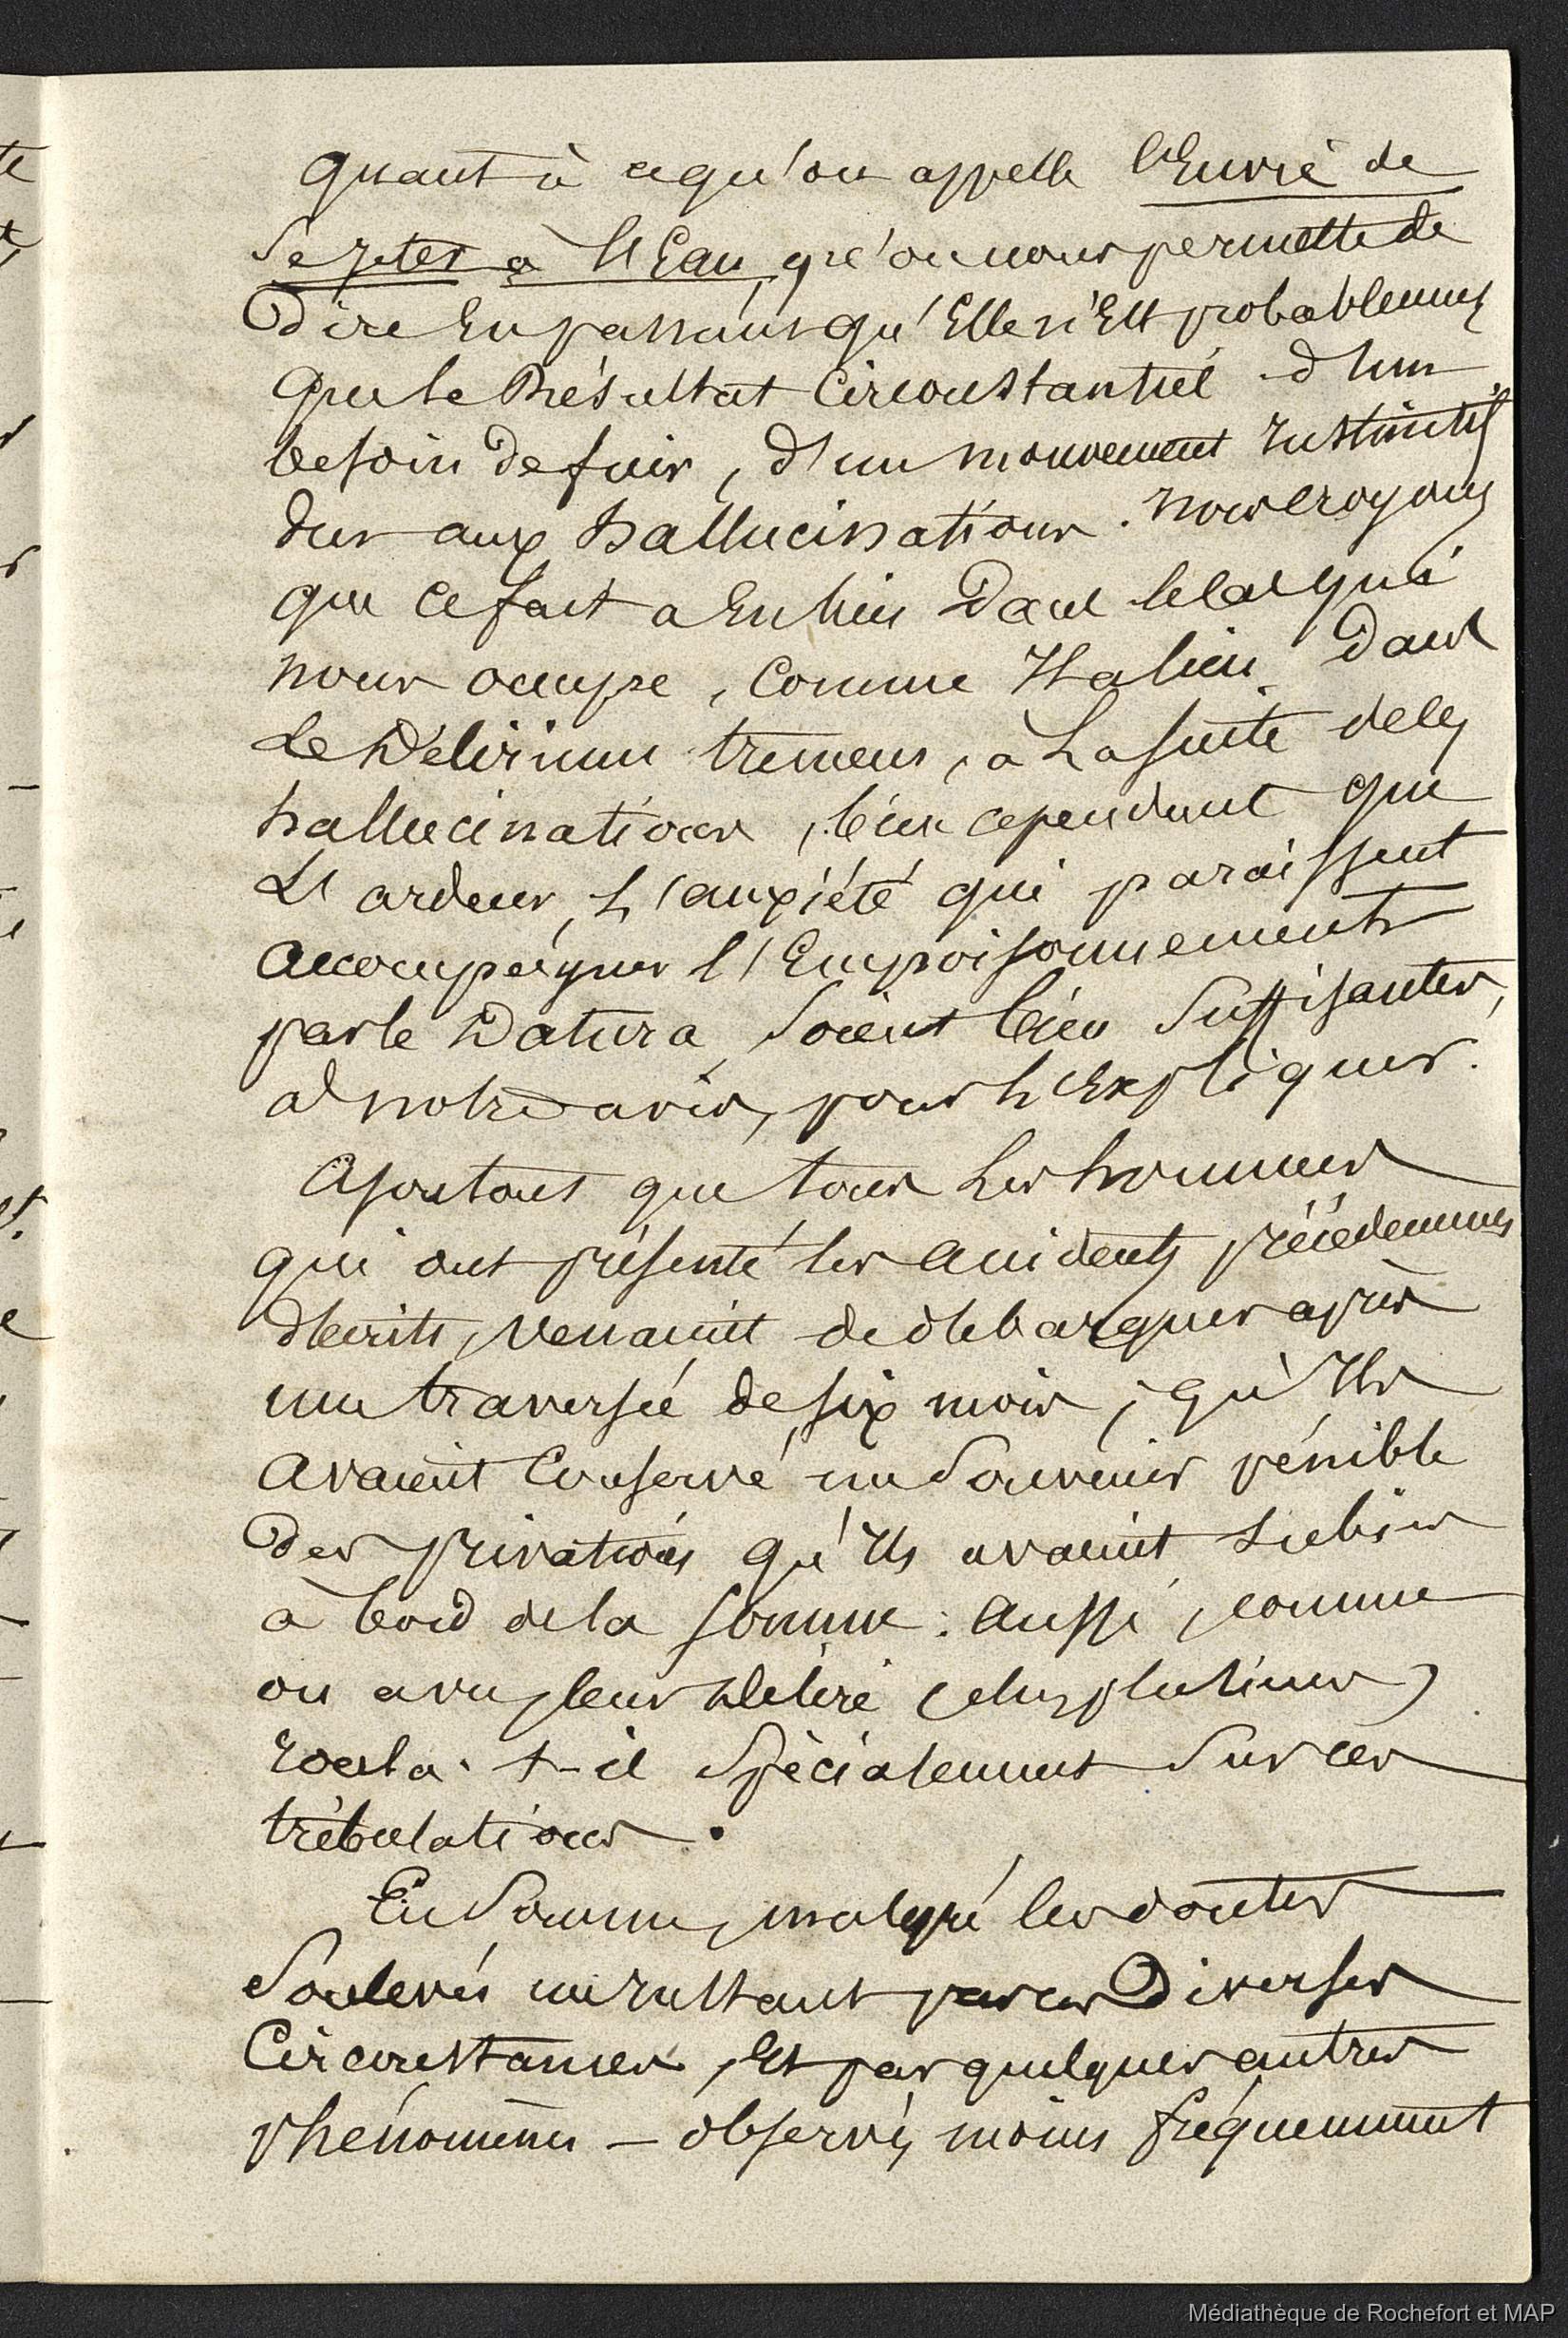 Quant à ce qu'on appelle l'Envie de
se jeter à l'Eau, qu'on nous permette de
Dire En passant qu'Elle n'Est probablement
que le Résultat Circonstantiel d'un
besoin de fuir, d'un mouvement Instinctif
dus aux hallucinations. Nous croyons
que ce fait a Eu lieu Dans le cas qui
nous occupe, Comme Il a lieu Dans
Le Délirium tremens, à La suite des
hallucinations, bien cependant que
L'ardeur, L'anxiété qui paraissent
accompagner l'Empoisonnement
par le Datura, soient bien suffisantes,
à notre avis, pour L'Expliquer.
Ajoutons que tous Les hommes
qui ont présenté les accidents précédemment
décrits, venaient de débarquer après
une traversée de six mois; qu'Ils
avaient Conservé un Souvenir pénible
Des privations qu'Ils avaient subies
à bord de la Somme: aussi, comme
on a vu, leur Délire (chez plusieurs)
roula-t-il Spécialement sur ces
tribulations.
En Somme, malgré les doutes
Soulevés un Instant par ces Diverses
Circonstances, Et par quelques autres
phénomènes — observés moins fréquemment
Médiathèque de Rochefort et MAP